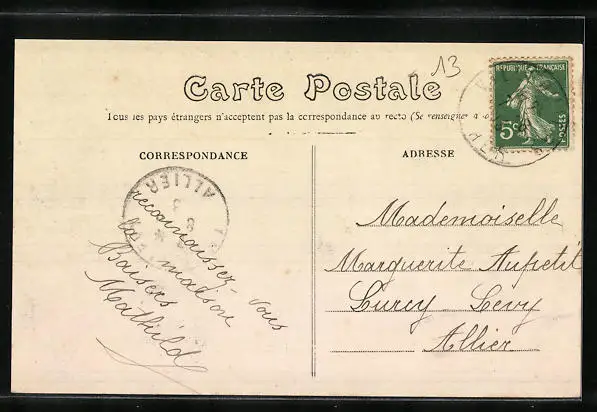 13
Carte Postale
REPUBLIQUE FRANÇAISE
5c
POSTES
Tous les pays étrangers n'acceptent pas la correspondance au recto (Se renseigner à
CORRESPONDANCE
ADRESSE
ALLIER
reconnaissez-vous
la maison
Baisers
Mathilde
Mademoiselle
Marguerite Aufretit
Lurcy Levy
Allier